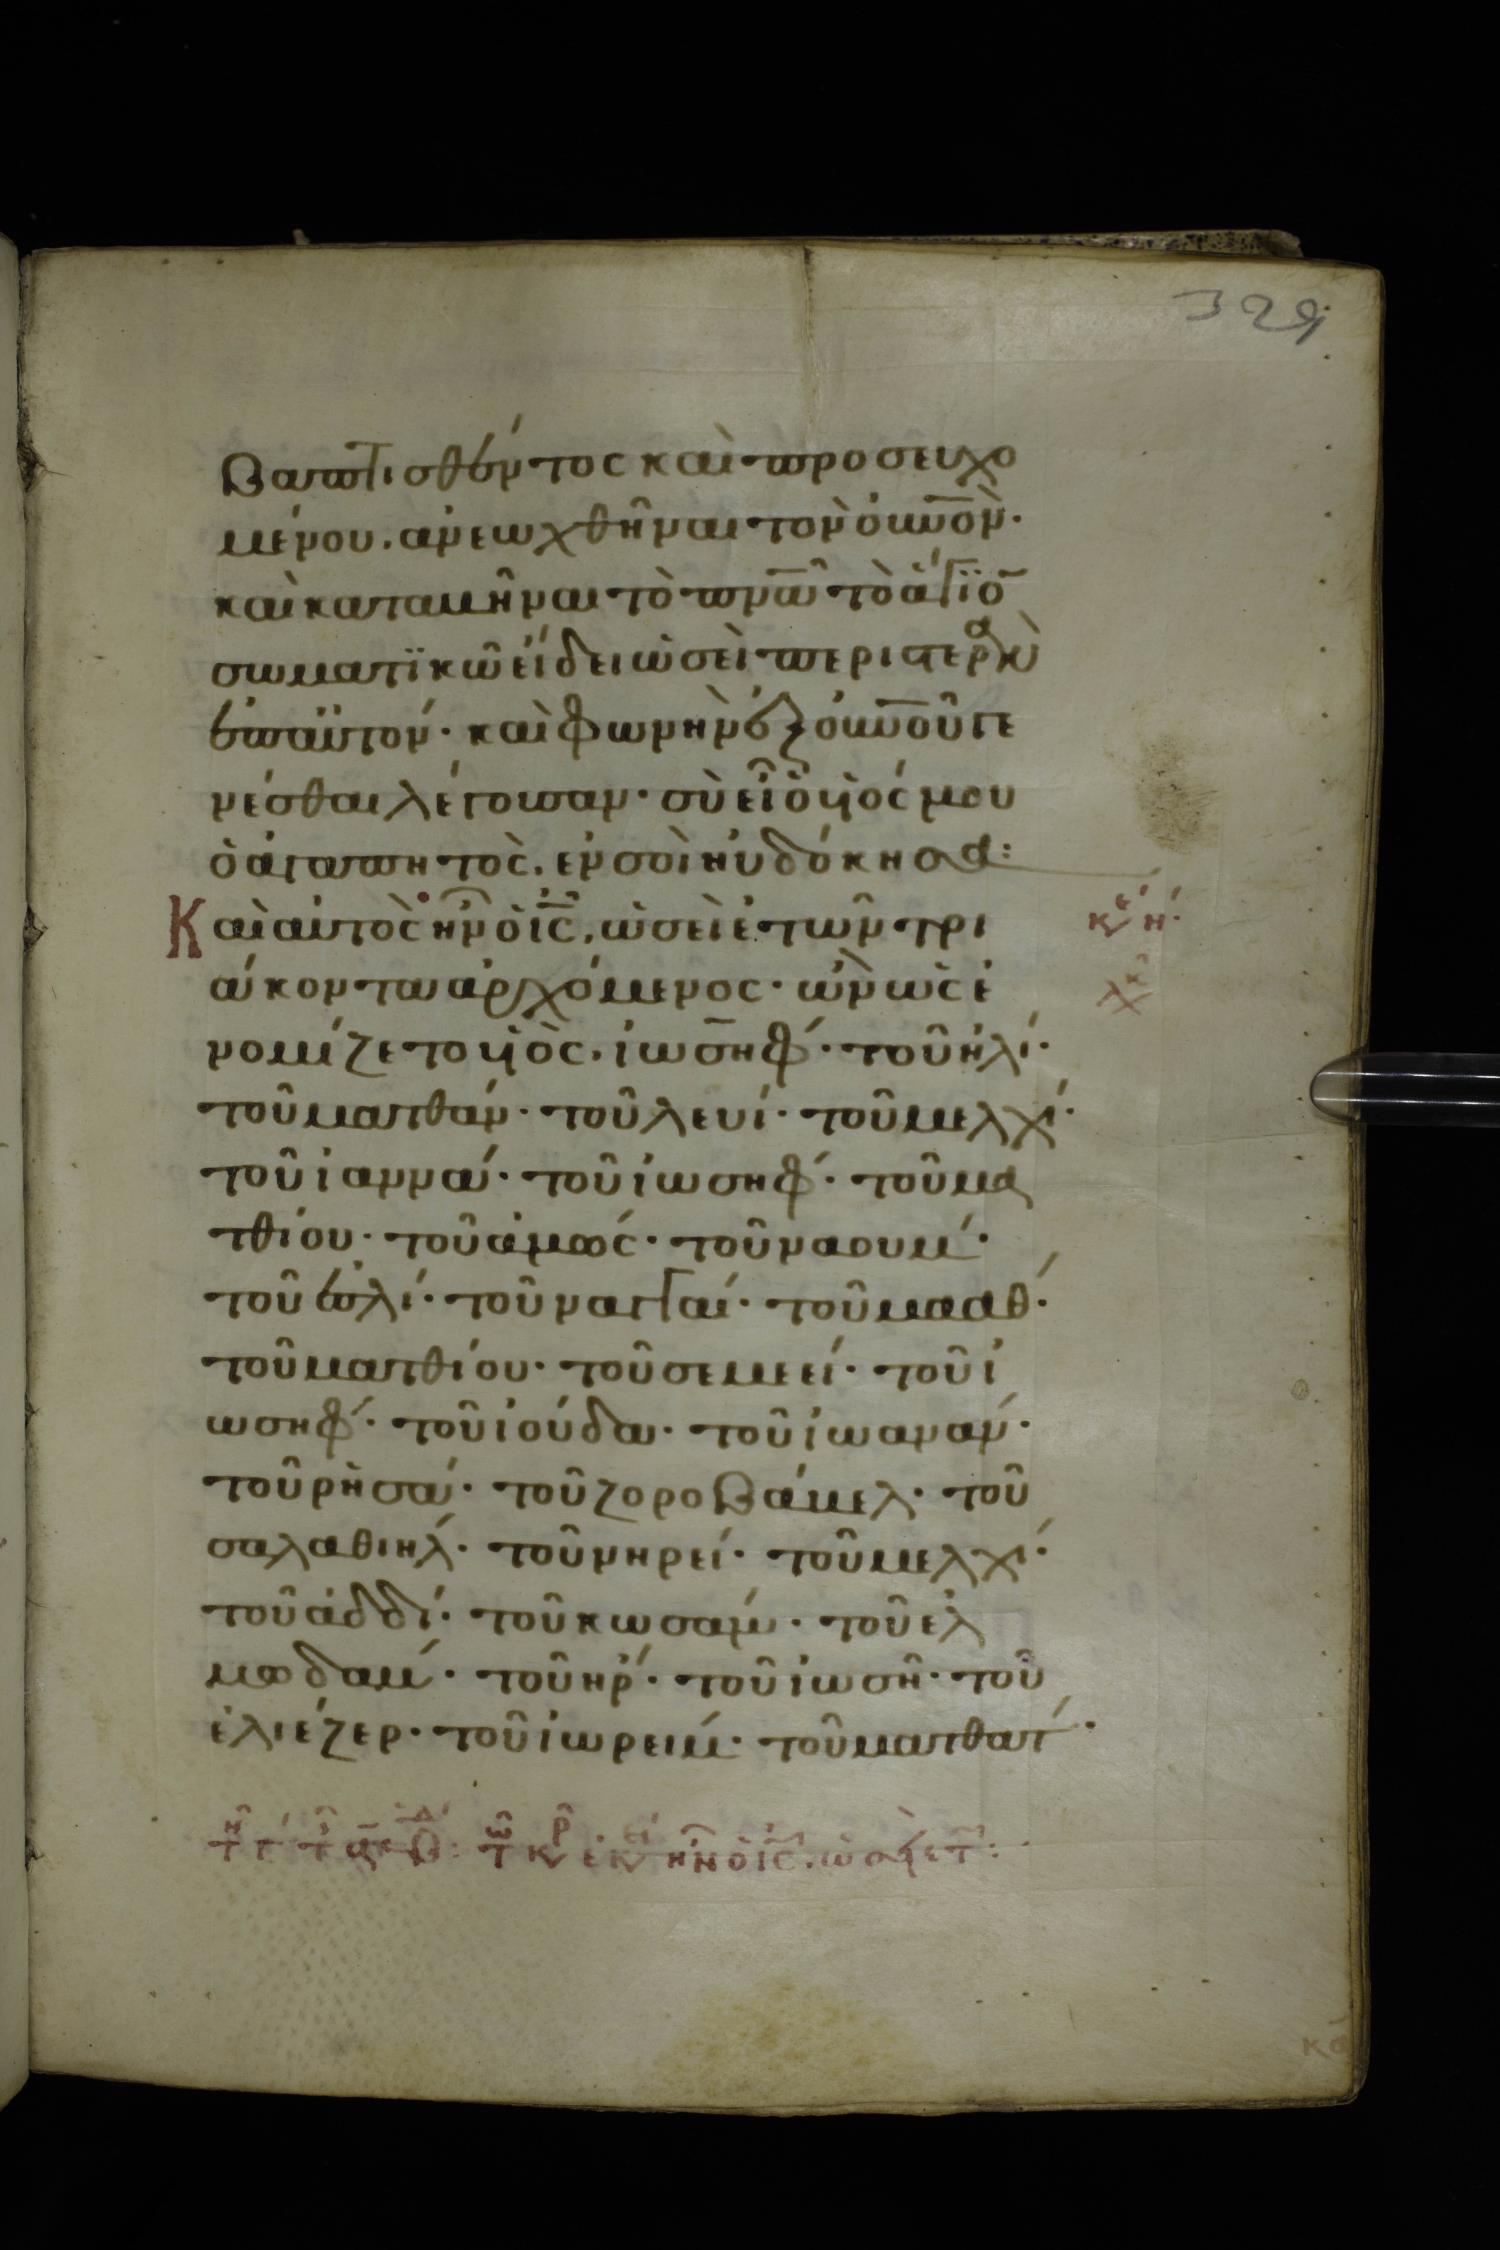 βαπτισθέντος καὶ προσευχο
μένου. ανεωχθῆναι τὸν οὐνὸν·
καὶ καταμῆναι τὸ πνᾶ τὸ ἅγϊο̄
σωματϊκῶ είδει ὡσεὶ περιστερὰν
ἐπαϋτόν· καὶ φωνὴν ἐξ οὐνοῦ γε
νέσθαι λέγουσαν· σὺ εἶ ὁ ὑϊός μου
ὁ ἀγαπητὸς. εν σοὶ ηὐδόκησα:
Καὶ αὐτὸς ἦν ὁ ις̅, ὡσεὶ ἐτῶν τρι
άκοντα ἀρχόμενος· ὢν ὡς ἐ
νομίζετο ὑϊὸς. ἰωσηφ· τοῦ ἠλί·
τοῦ ματθάν· τοῦ λευί· τοῦ μελχί·
τοῦ ἰαννά· τοῦ ἰωσηφ· τοῦ μα
τθίου· τοῦ ἀμώς· τοῦ ναούμ·
τοῦ ἐσλί· τοῦ ναγγαί· τοῦ μααθ·
τοῦ ματθίου· τοῦ σεμεεί· τοῦ ἰ
ωσηφ· τοῦ ἰούδα· τοῦ ἰωανάν·
τοῦ ρὴσά· τοῦ ζοροβάμελ· τοῦ
σαλαθιηλ· τοῦ νηρεί· τοῦ μελχί·
τοῦ ἀδδί· τοῦ κωσάμ· τοῦ ἐλ
μωδάμ· τοῦ ηρ· τοῦ ἰωσῆ· τοῦ
ἐλιέζερ· τοῦ ἰωρείμ· τοῦ ματθατ·
ἦν ὁ ις̅,